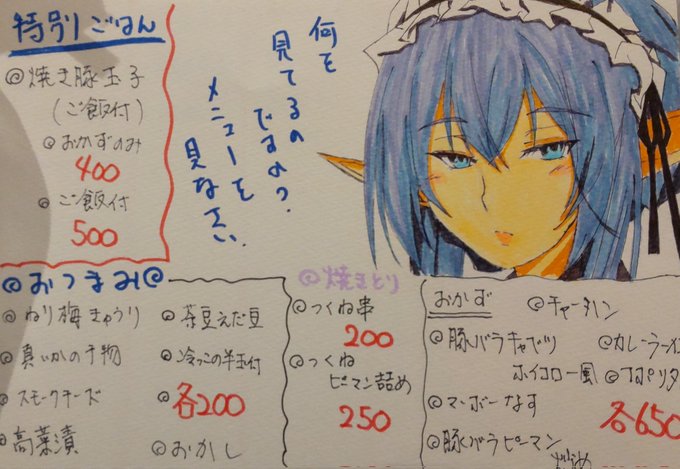 特別ごはん
◎焼き豚玉子
(ご飯付)
◎おかずのみ
400
◎ご飯付
500
何を
見てるの
ですの?
メニューを
見なさい
◎おつまみ◎
◎ねり梅きゅうり
◎真いかの干物
◎スモークチーズ
◎高菜漬
◎茶豆えだ豆
◎冷っこの半玉付
◎各200
◎おかし
◎焼きとり
◎つくね串
200
◎つくね
ピーマン詰め
250
おかず
◎チャータハン
◎豚バラキャベツ
ホイコーロー風
◎マーボーなす
◎豚バラピーマン
◎カレーラーメン
◎ナポリタ
各650